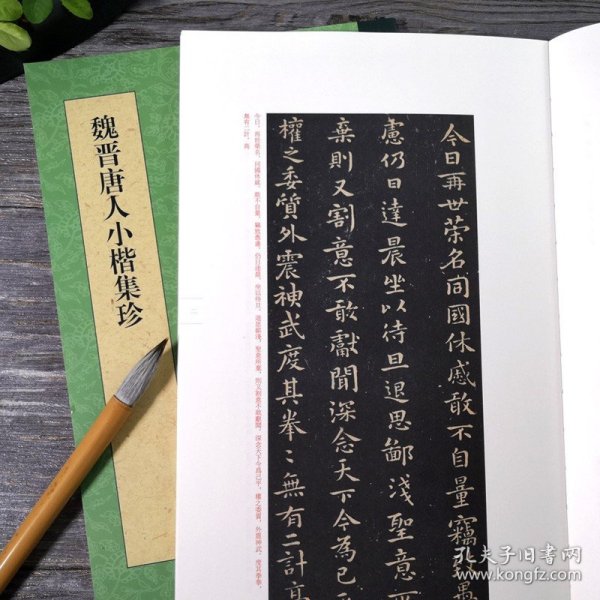 魏晋唐人小楷集珍
今日再世荣名同國休慼敢不自量竊致愚
慮仍日達晨坐以待旦退思鄙淺聖意所
棄則又割意不敢獻聞深念天下今為已平
權之委質外震神武度其拳〻無有二計高
今日，再世榮名，同國休慼，敢不自量，竊致愚慮，仍日達晨，坐以待旦，退思鄙淺，聖意所棄，則又割意不敢獻聞，深念天下今爲已平，權之委質，外震神武，度其拳拳，
無有二計，高
孔夫子旧书网
www.kongfz.com